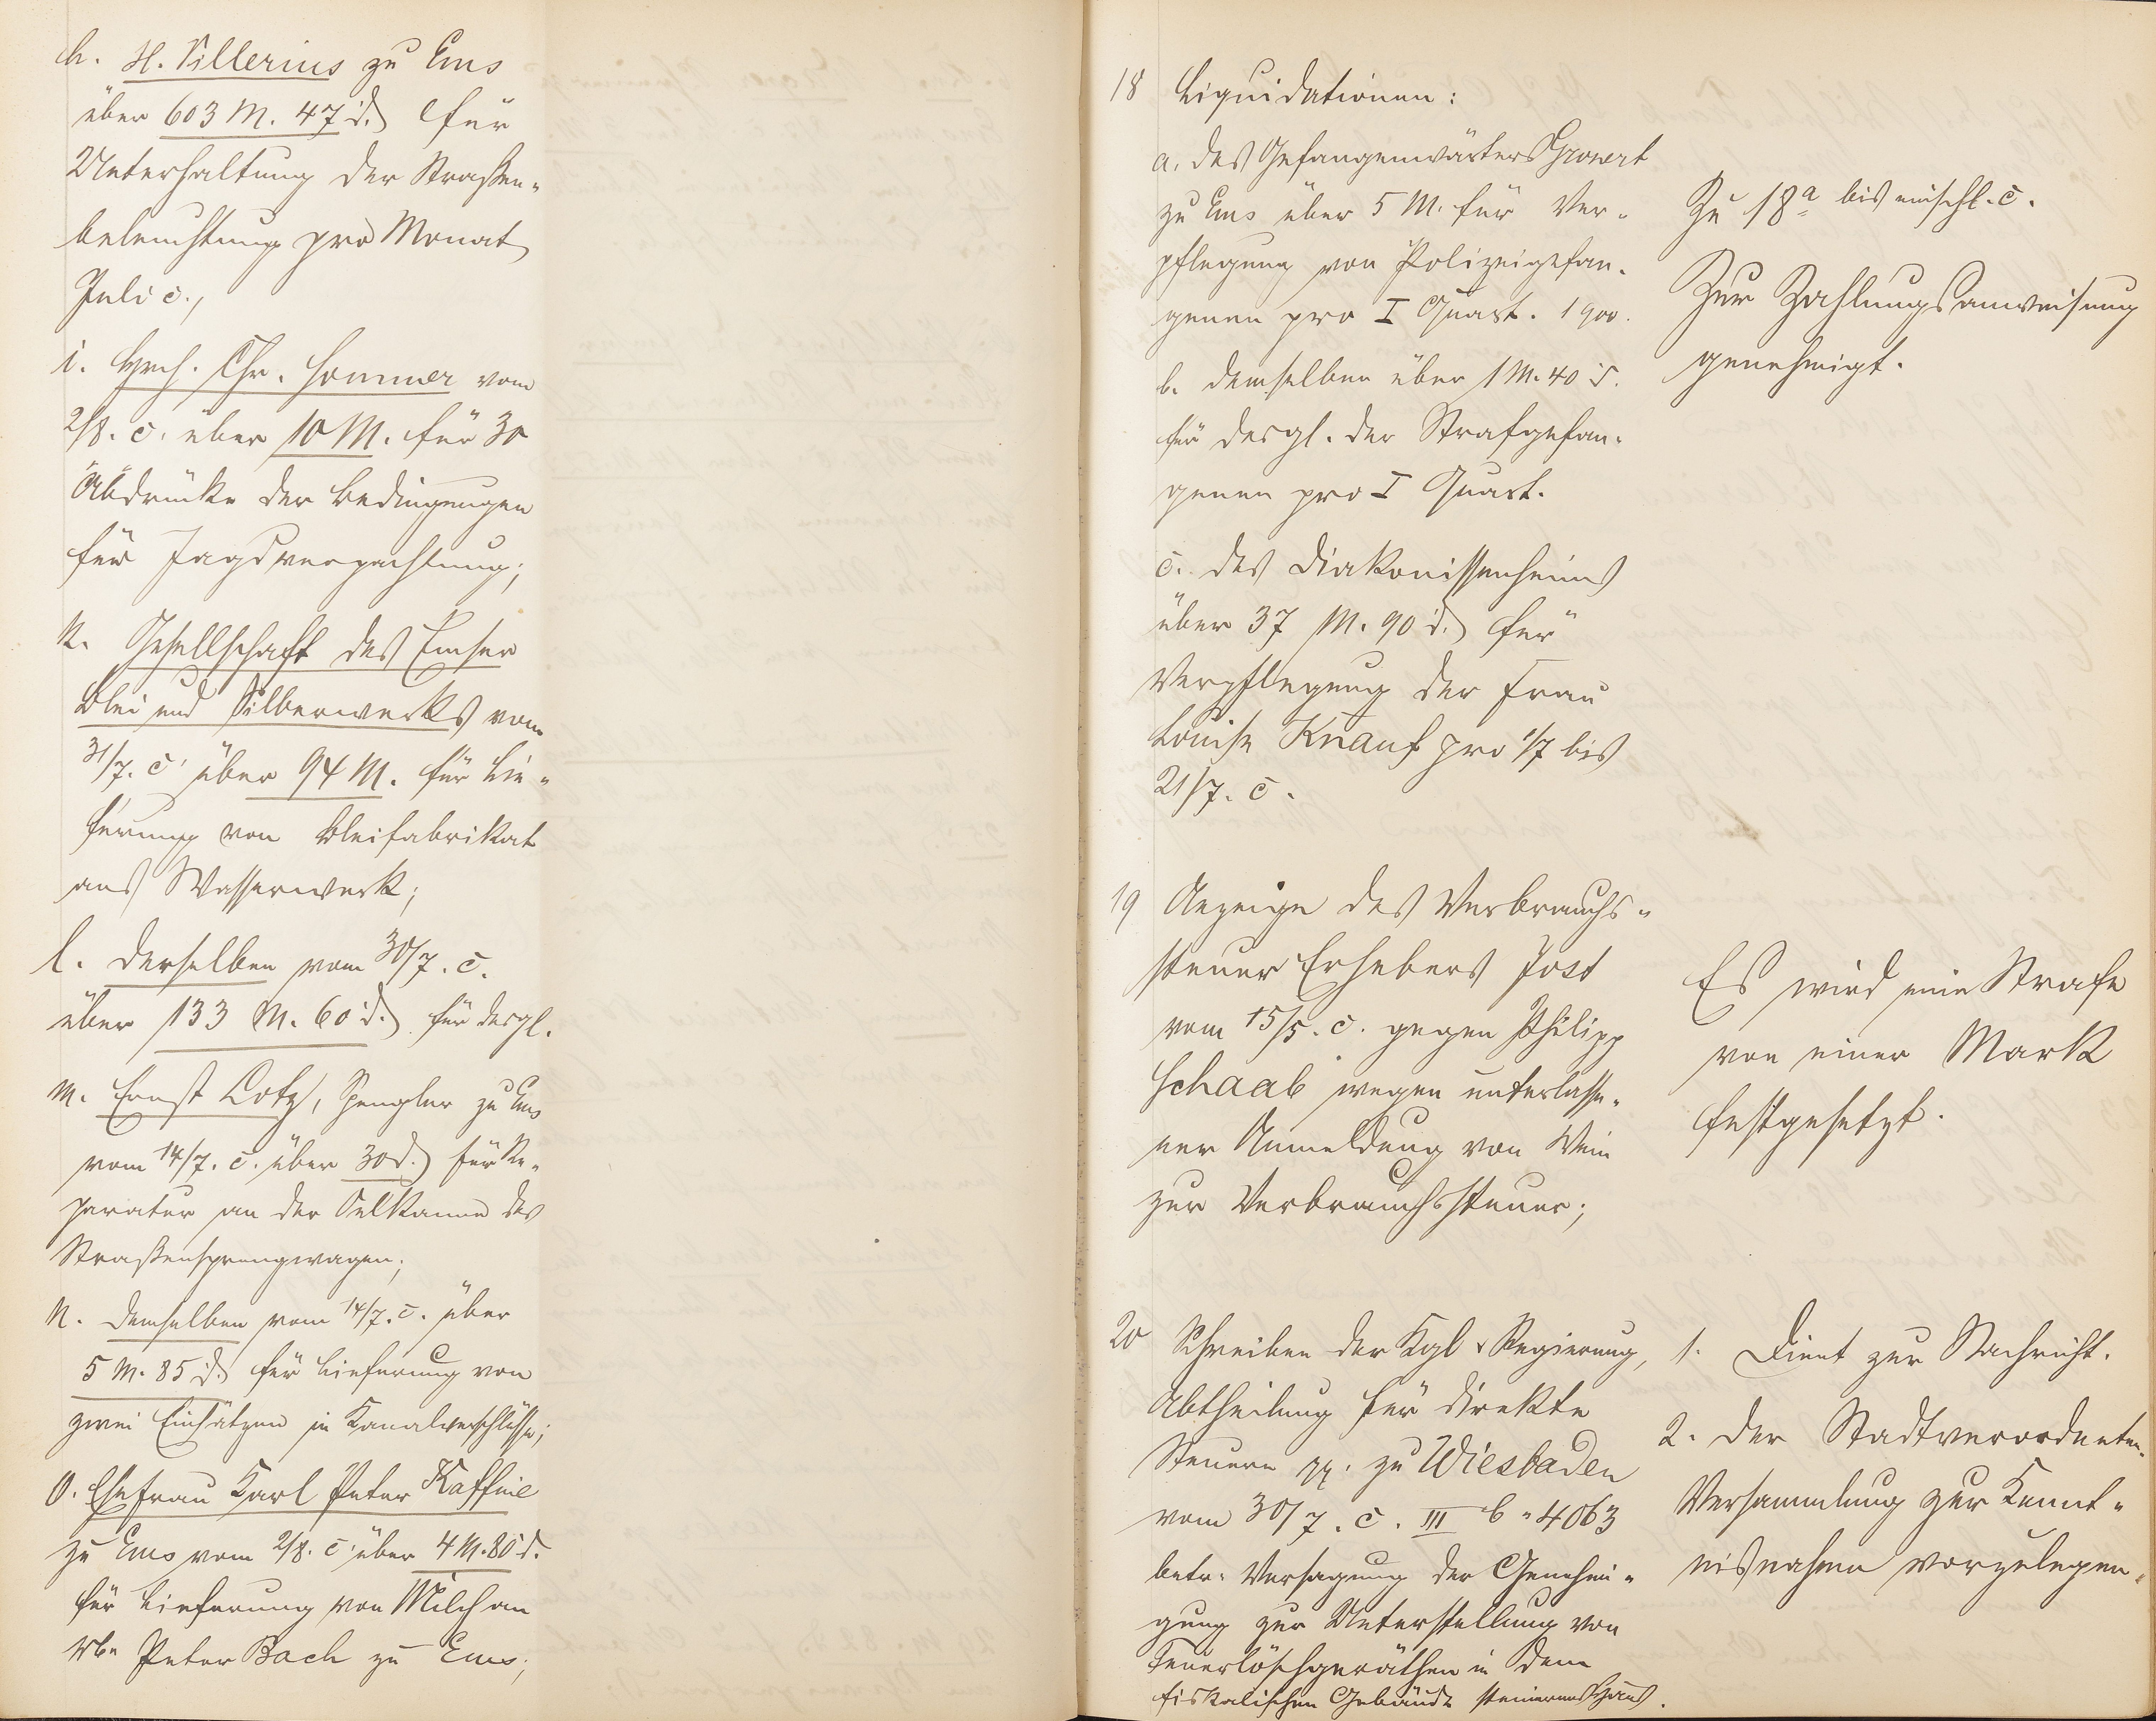 h. H. Sillerius zu Ems
über 603 M. 47 d. für
Unterhaltung der Straßen-
beleuchtung pro Monat
Juli c.,
i. Hrch. Chr. Sommer vom
2/8. c. über 10 M. für 30
Abdrücke der Bedingungen
für Jagdverpachtung;
k. Gesellschaft des Emser
Blei und Silberwerks vom
31/7. c. über 94 M. für Lie-
ferung von Bleifabrikat
ans Wasserwerk;
l. derselben vom 30/7. c.
über 133 M. 60 d. für desgl.
m. Ernst Lotz, Spengler zu Ems
vom 14/7. c. über 30 d. für Re-
paratur an der Oelkanne des
Straßensprengwagen;
n. demselben vom 14/7. c. über
5 M. 85 d. für Lieferung von
zwei Einsätzen in Kanalverschlüsse;
o. Ehefrau Karl Peter Kaffine
zu Ems vom 2/8. c. über 4 M. 80 d.
für Lieferung von Milch an
Wwe Peter Bach zu Ems;
18 Liquidationen:
a. des Gefangenwärters Gronert
zu Ems über 5 M. für Ver-
pflegung von Polizeigefan-
genen pro I Quart. 1900.
b. demselben über 1 M. 40 d.
für desgl. der Strafgefan-
genen pro I Quart.
c. des Diakonissenheims
über 37 M. 90 d. für
Verpflegung der Frau
Louise Knauf pro 1/7 bis
21/7. c.
Zu 18a bis einschl. c.
Zur Zahlungsanweisung
genehmigt.
19 Anzeige des Verbrauchs-
steuer Erhebers Jost
vom 15/5. c. gegen Philipp
Schaab wegen unterlasse-
ner Anmeldung von Wein
zur Verbrauchssteuer;
Es wird eine Strafe
von einer Mark
festgesetzt.
20 Schreiben der Kgl. Regierung,
Abtheilung für direkte
Steuern pp. zu Wiesbaden
vom 30/7. c. III b. 4063
betr. Versagung der Genehmi-
gung zur Unterstellung von
Feuerlöschgeräthen in dem
fiskalischen Gebäude steinernes Haus.
1. Dient zur Nachricht.
2. der Stadtverordneten-
Versammlung zur Kennt-
nisnahme vorzulegen.